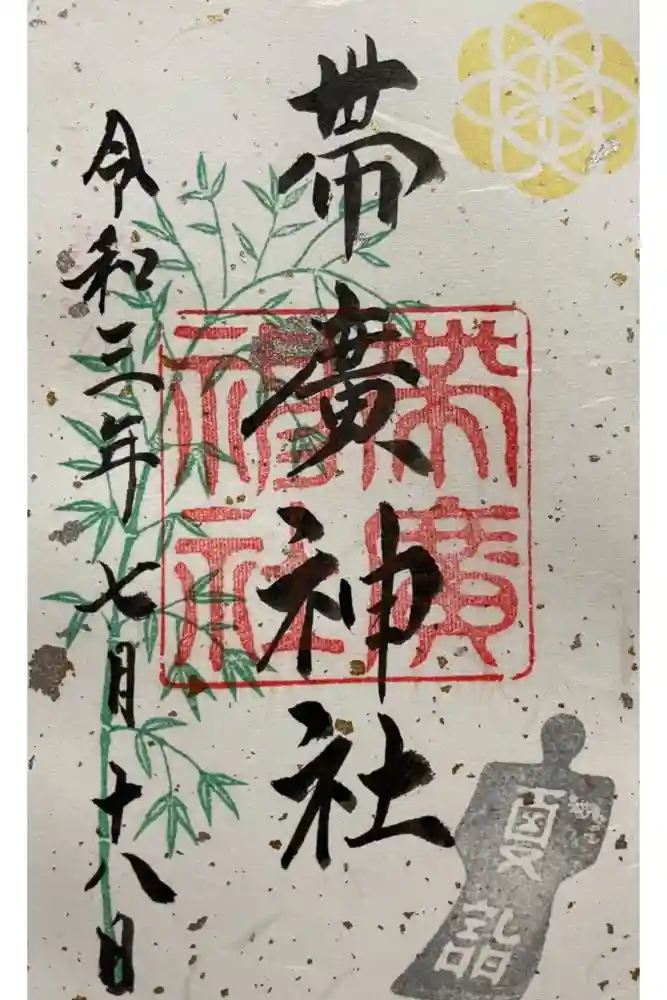 帯廣神社
令和三年七月十八日
帯廣
神社
夏詣